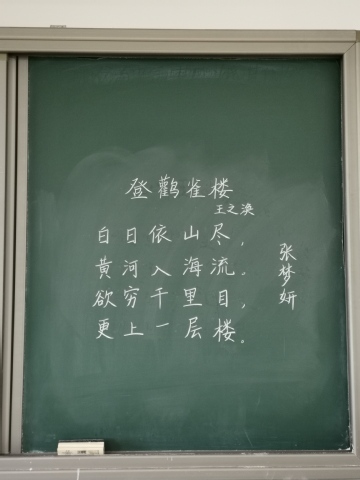 登鹳雀楼
王之涣
白日依山尽，
黄河入海流。
欲穷千里目，
更上一层楼。
张梦妍